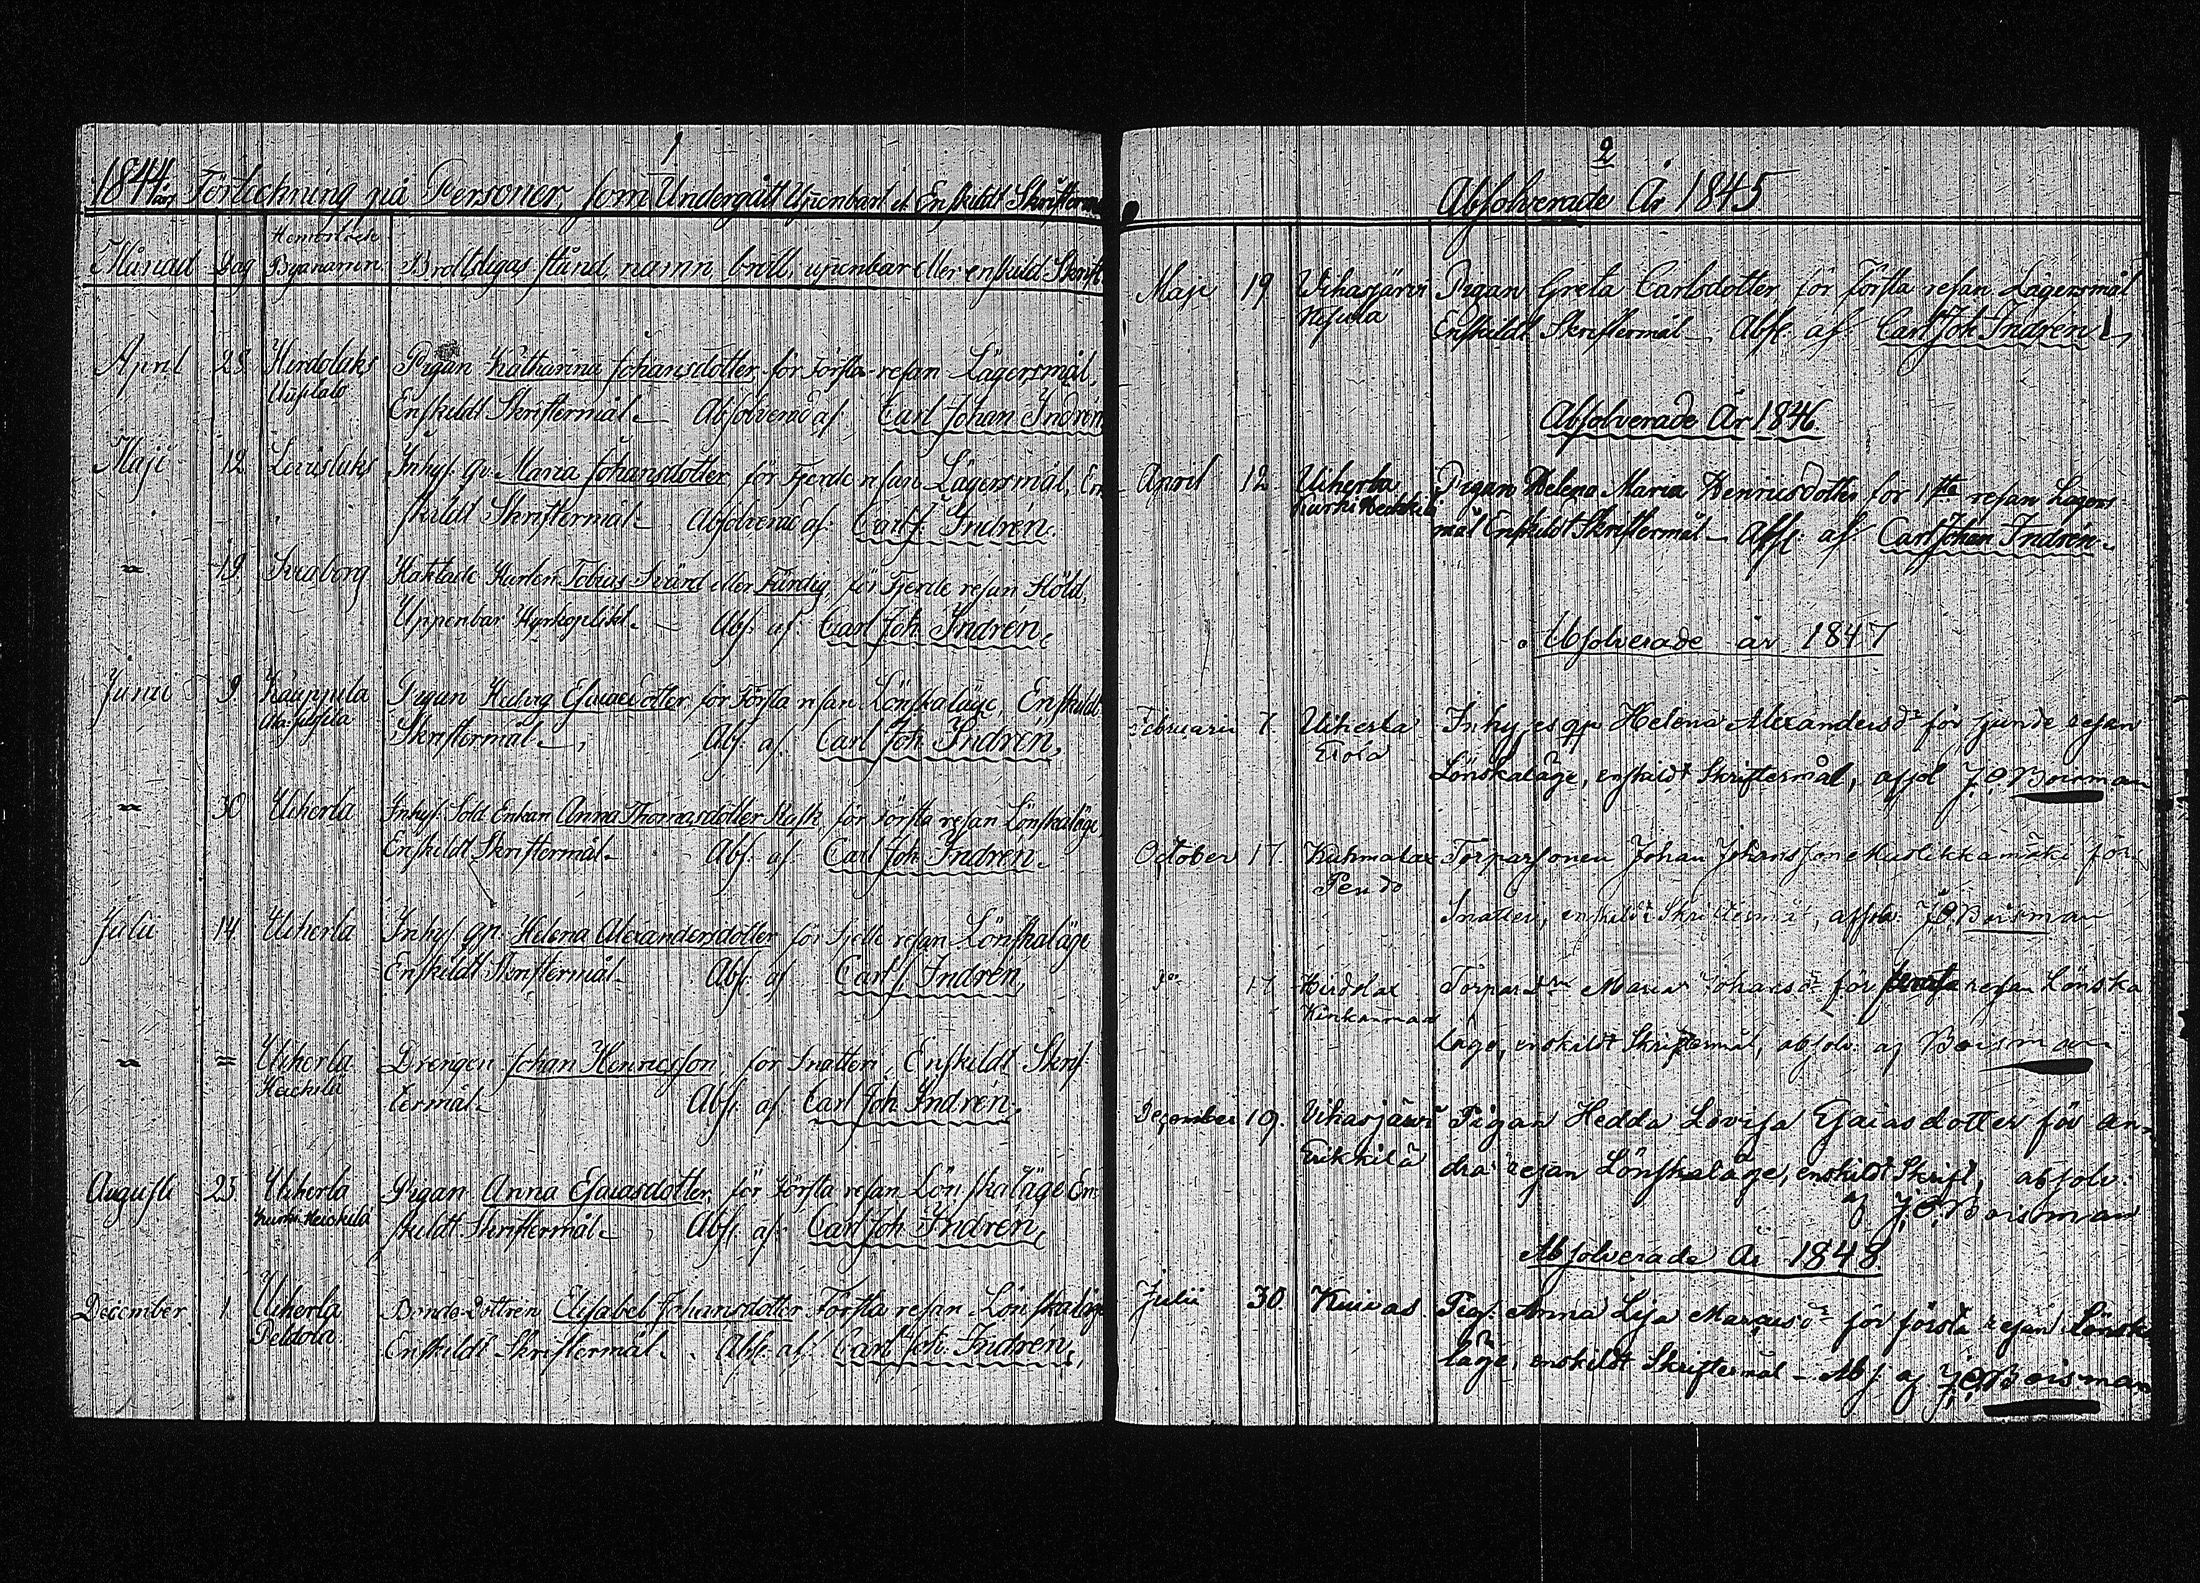 1
1844 års Förteckning på Personer, som Undergått Uppenbart et Enskildt Skrifterm
Månad Dag Hemvistade Byanamn Brottsligas stånd, namn, brott, uppenbar eller enskild Skrift
April 28 Hirdolaks Pigan Katharina Johansdotter för Första resan Lägersmål,
Uusitalo Enskildt Skriftermål. Absolverad af: Carl Johan Indrén,
Maji 12 Inhys. qv. Maria Johansdotter för Fjerde resan Lägersmål, En
skildt Skriftermål. Absolverad af: Carl J. Indrén.
" 19 Sveaborg Häktade Karlen Tobias Svärd eller Färdig, för Fjerde resan Stöld,
Uppenbar Kyrkoplikt. Abs: af: Carl Joh. Indrén,
Junii 9 Kauppila Pigan Hedvig Esaiædotter för Första resan Lönskaläge, Enskildt
Skriftermål. Abs: af: Carl Joh. Indrén,
" 30 Uiherla Inhys. Sold. Enkan Anna Thomasdotter Rask, för Första resan Lönskaläge,
Enskildt Skriftermål. Abs: af: Carl Joh. Indrén.
Julii 14 Uiherla Inhys. qp. Helena Alexandersdotter för Sjette resan Lönskaläge
Enskildt Skriftermål. Abs: af Carl J. Indrén,
" = Uiherla Drengen Johan Henricsson, för Snatteri, Enskildt Skrif
Heickilä termål. Abs: af: Carl Joh. Indrén,
Augusti 25 Uiherla Pigan Anna Esaiasdotter för Första resan Lönskaläge En
Kurki Heickilä skildt Skriftermål. Abs: af: Carl Joh. Indrén,
December 1 Uiherla Bonde Dottren Elisabet Johansdotter Första resan Lönskaläge
Peldola Enskildt Skriftermål. Abs: af: Carl Joh. Indrén,
2
Absolverade År 1845
Maji 19 Vihasjärvi Pigan Greta Carlsdotter för Första resan Lägersmål
Enskildt Skriftermål. Abs: af Carl Joh. Indrén
Absolverade År 1846
April 12 Uiherla Pigan Helena Maria Henricsdotter för 1sta resan Lägers-
Kurki Heickilä mål Enskildt Skriftermål. Abs: af Carl Johan Indrén.
Absolverade år 1847
Februarii 7. Uiherla Inhyses qp Helena Alexandersdr för sjunde resan
Tola Lönskaläge, enskildt Skriftermål, absol J.E. Boisman
October 17. Kuhmalax Torparsonen Johan Johansson för
Pendo
Snatteri, enskildt Skriftermål, absolv J.E. Boisman
do 17 Hirdolax Maria Johansdr för resan Lönska
läge, enskildt Skriftermål, absolv: af Boisman
December 19. Vihasjärvi Pigan Hedda Lovisa Esaiasdotter för an-
Erikkilä dra resan Lönskaläge, enskildt Skrift, absolv.
af J.E. Boisman
Absolverade År 1848
Julii 30. Kuivas Pig. Anna Lisa Marcusdr för första resan Lönska
läge, enskildt Skriftermål. Abs af J.E. Boisman